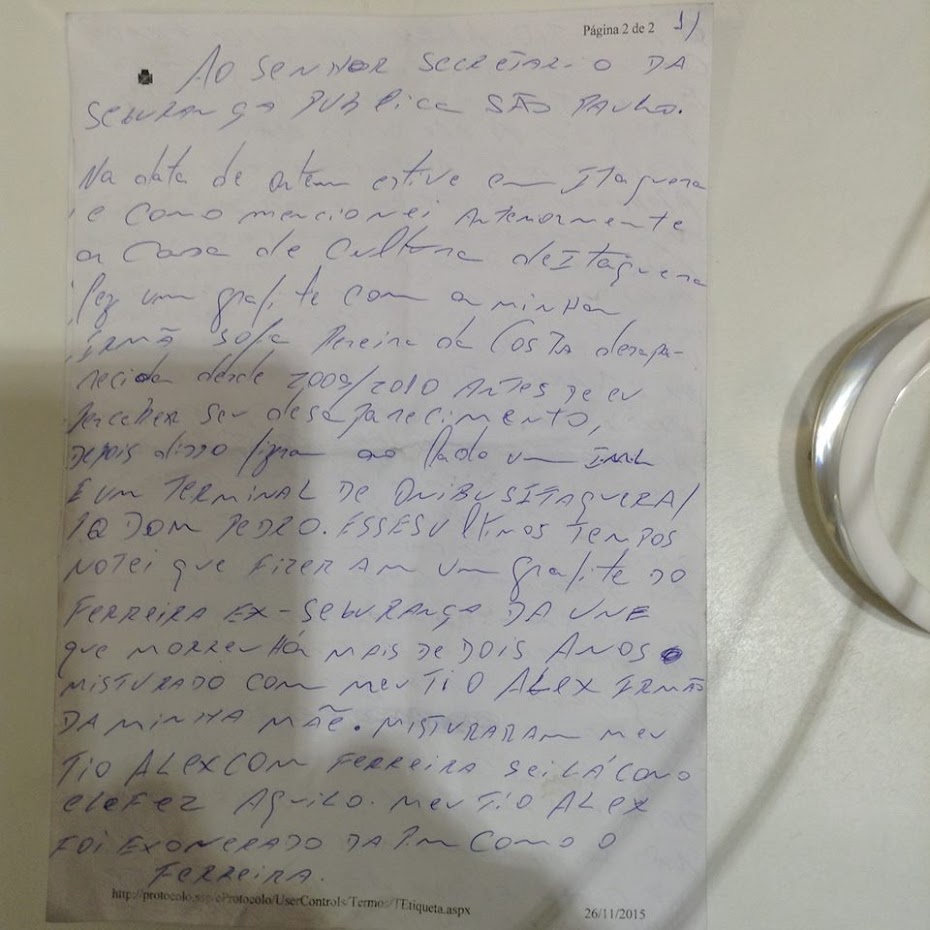 Página 2 de 2 1)
AO SENHOR SECRETARIO DA
SEGURANÇA PUBLICA SÃO PAULO.
Na data de ontem estive em Itaquera
e como mencionei anteriormente
a Casa de Cultura de Itaquera
fez um grafite com a minha
IRMÃ Sofia Pereira da COSTA desapa-
recida desde 2009/2010 ANTES DE EU
perceber seu desaparecimento,
DEPOIS disso ao lado um IML
E UM TERMINAL DE ONIBUS ITAQUERA/
PQ DOM PEDRO. ESSES ULTIMOS TEMPOS
NOTEI que FIZERAM UM grafite DO
FERREIRA EX-SEGURANÇA DA UNE
que MORREU HÁ MAIS DE DOIS ANOS
MISTURADO COM MEU TIO ALEX IRMÃO
DA MINHA MÃE. MISTURARAM MEU
TIO ALEX COM FERREIRA SEI LÁ COMO
ELE FEZ AQUILO. MEU TIO ALEX
FOI EXONERADO DA PM COMO O
FERREIRA.
http://protocolo.ssp/eProtocolo/UserControls/Termos/TEtiqueta.aspx
26/11/2015